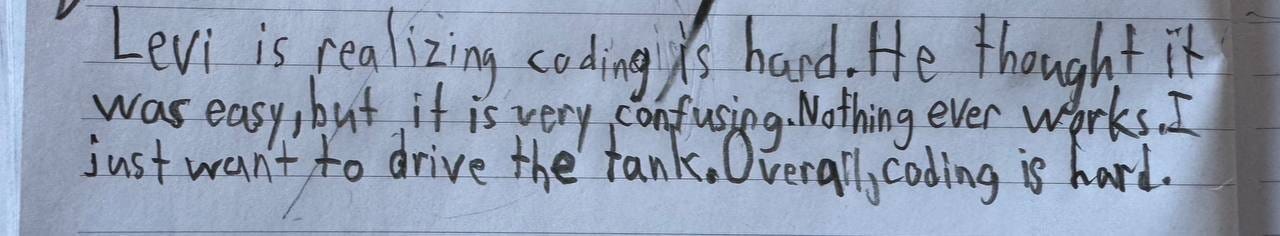 Levi is realizing coding is hard. He thought it
was easy, but it is very confusing. Nothing ever works. I
just want to drive the tank. Overall, coding is hard.